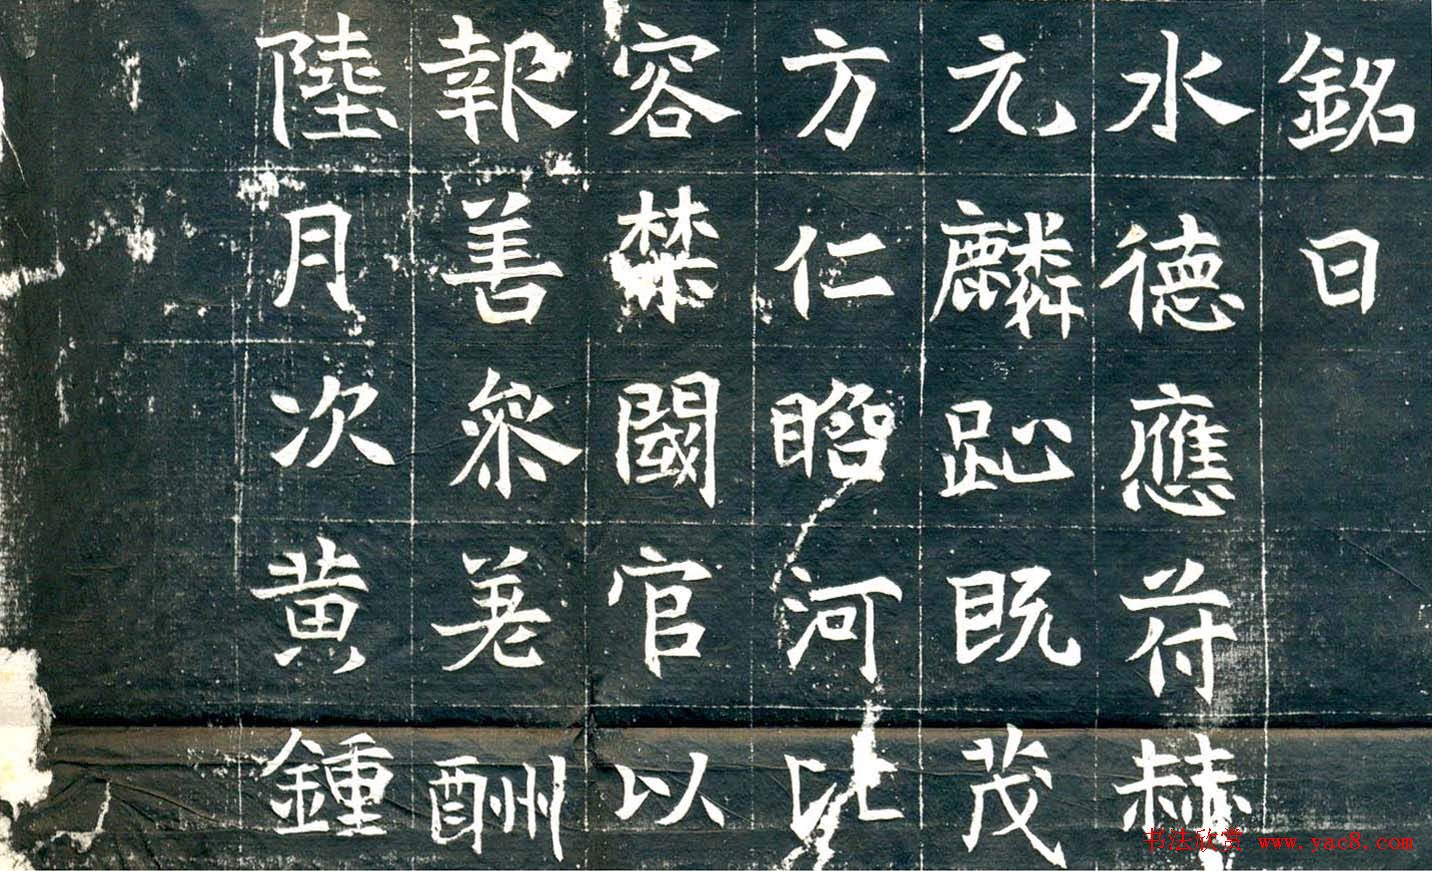 銘曰
水德應符赫
亢麟趾既茂
方仁瞻河比
容禁闥官以
報善參羌酬
陸月次黄鍾
书法欣赏 www.yac8.com